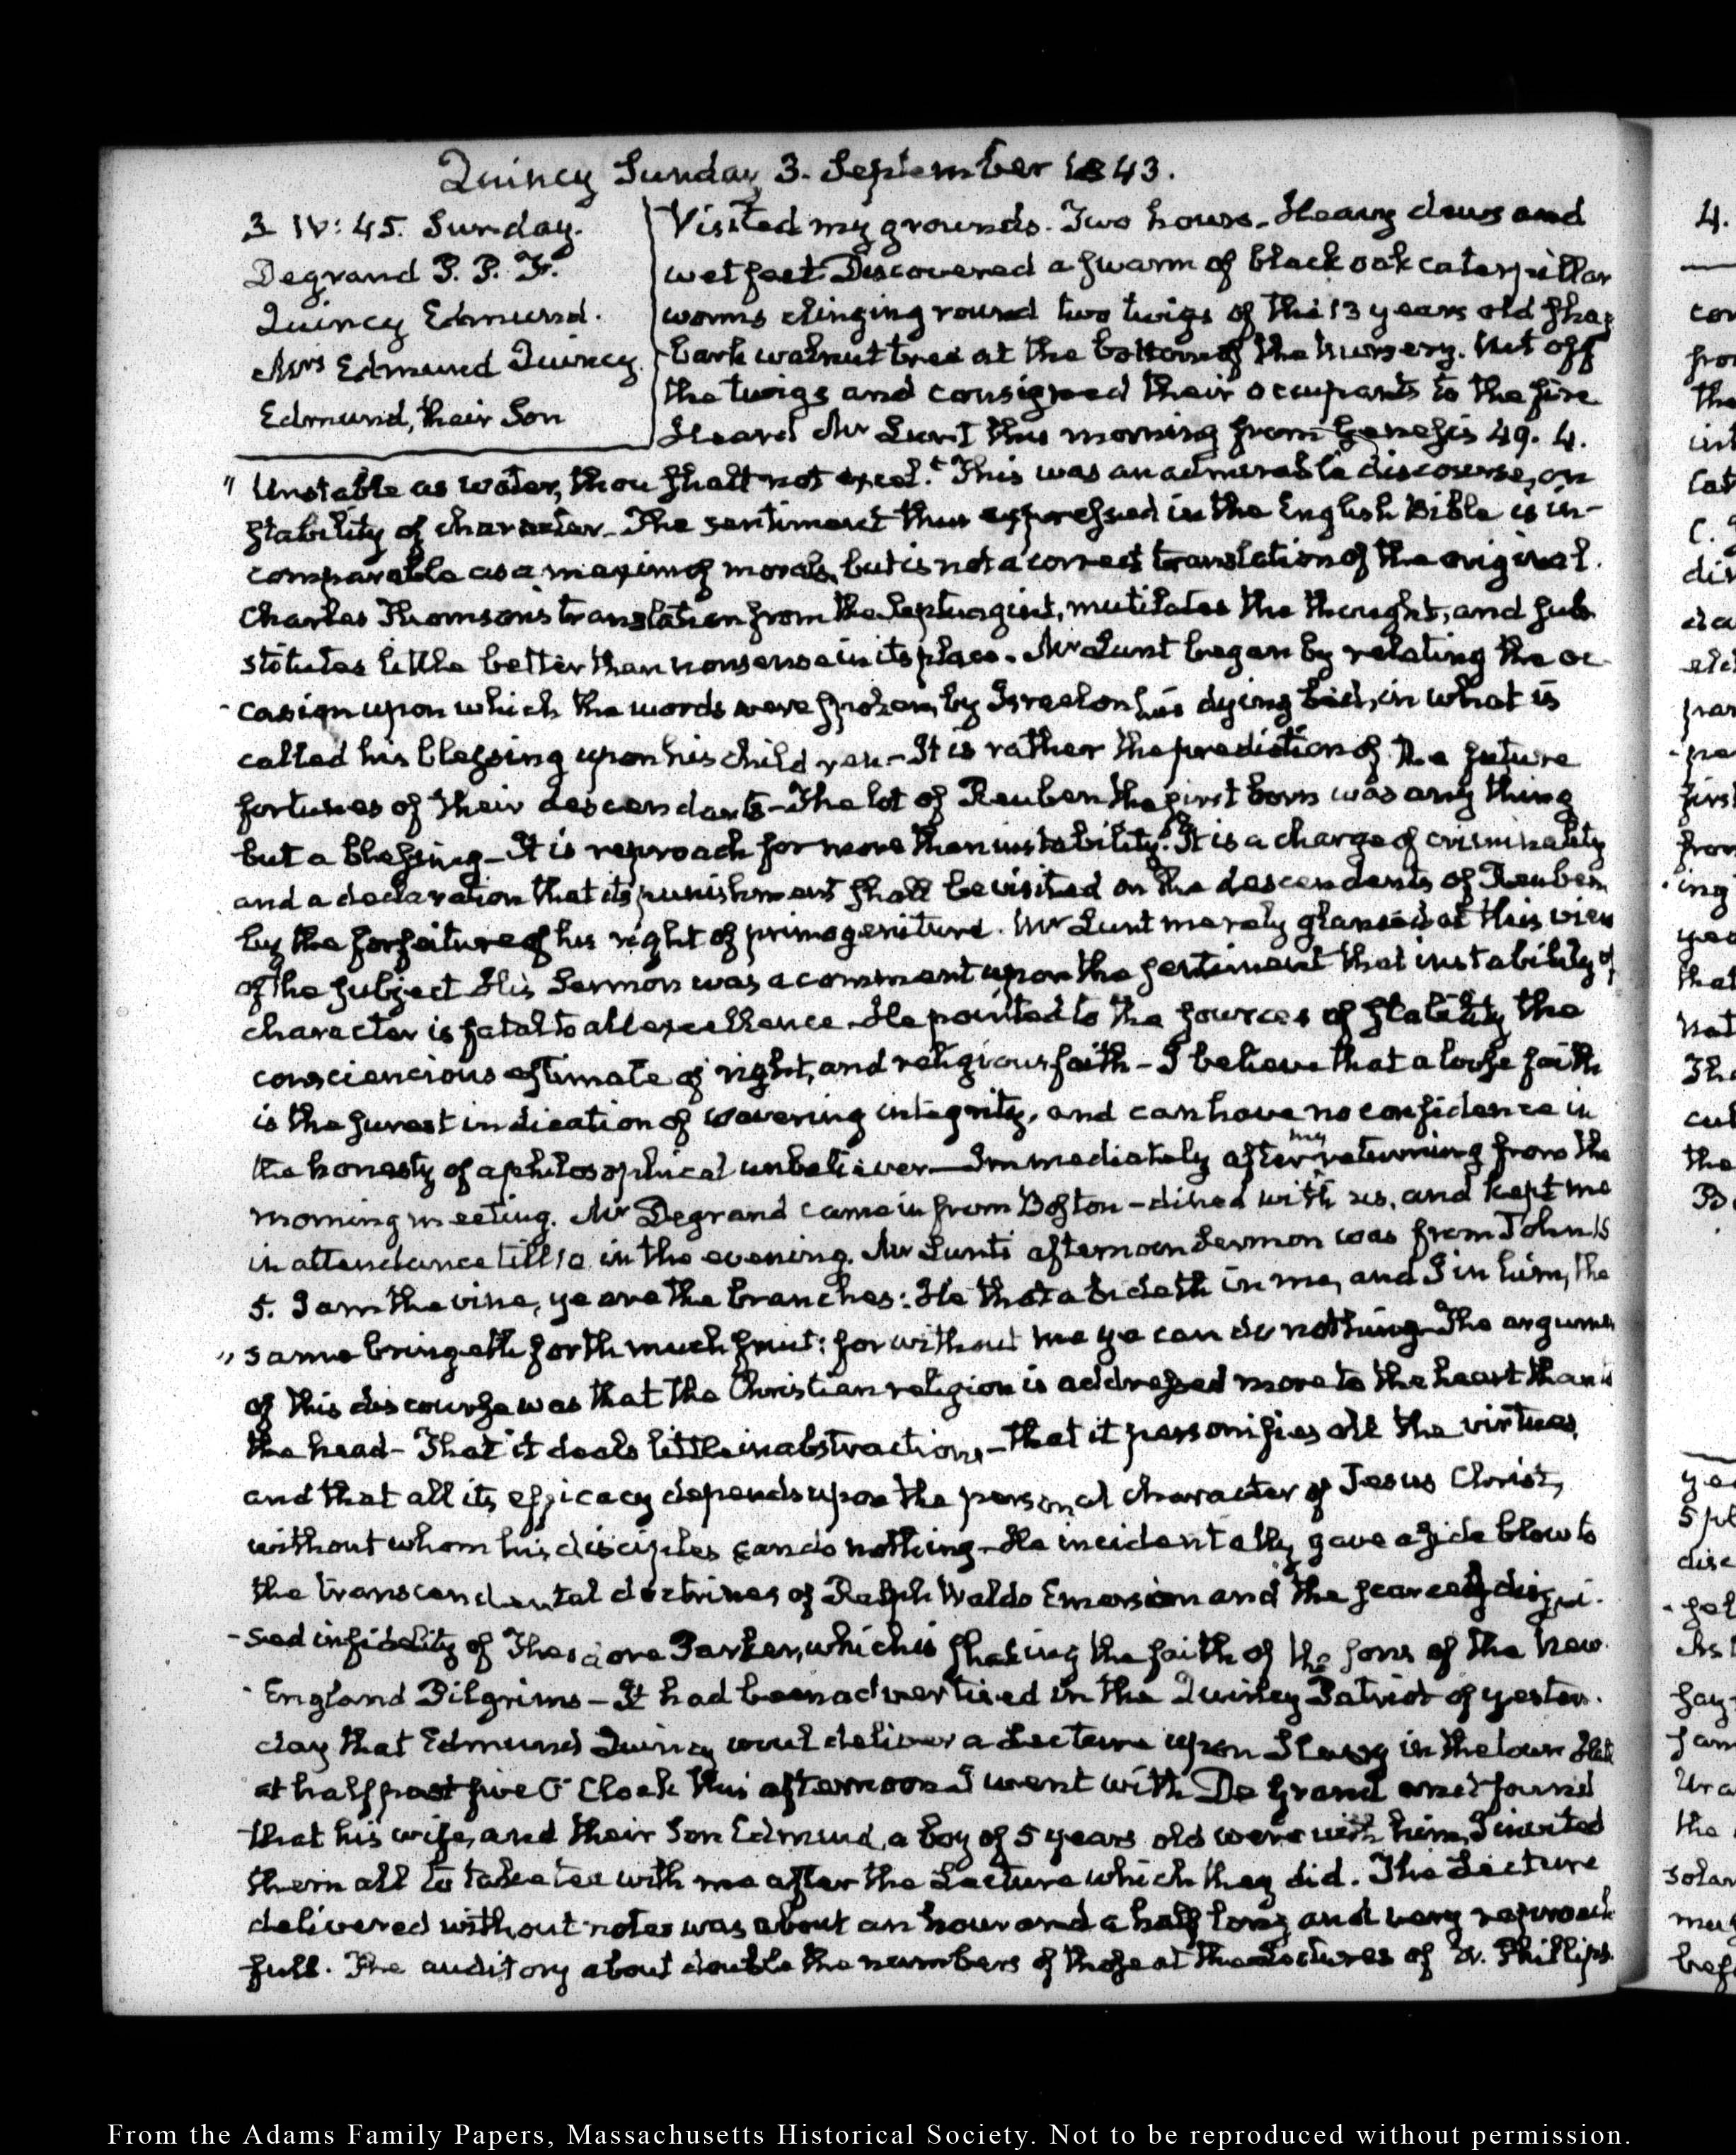 Quincy Sunday 3. September 1843.
3 IV: 45. Sunday.
Degrand P. P. F.
Quincy Edmund.
Mrs Edmund Quincy
Edmund, their Son
Visited my grounds. Two hours. Heavy dews and
wet feet Discovered a swarm of black oak caterpillar
worms clinging round two twigs of the 13 years old shag
bark walnut tree at the bottom of the Nursery. Cut off
the twigs and consigned their occupants to the fire
Heard Mr Lunt this morning from Genesis 49. 4.
"Unstable as water, thou shalt not excel." This was an admirable discourse, on
stability of character. The sentiment thus expressed in the English Bible is in-
comparable as a maxim of morals, but is not a correct translation of the original.
Charles Thomson's translation from the Septuagint, mutilates the thought, and sub
stitutes little better than nonsense in its place. Mr Lunt began by relating the oc-
-casion upon which the words were spoken, by Israel on his dying bed, in what is
called his blessing upon his children - It is rather the prediction of the future
fortunes of their descendants - The lot of Reuben the first born was any thing
but a blessing - It is reproach for more than instability. It is a charge of criminality
and a declaration that its punishment shall be visited on the descendants of Reuben
by the forfeiture of his right of primogeniture. Mr Lunt merely glanced at this view
of the subject His Sermon was a comment upon the sentiment that instability of
character is fatal to all excellence. He pointed to the sources of stability the
consciencious estimate of right, and religious faith - I believe that a loose faith
is the surest indication of wavering integrity, and can have no confidence in
the honesty of a philosophical unbeliever - Immediately after my returning from the
morning meeting. Mr Degrand came in from Boston - dined with us, and kept me
in attendance till 10 in the evening. Mr Lunt's afternoon Sermon was from John 15
5. I am the vine, ye are the branches: He that abideth in me, and I in him, the
"same bringeth forth much fruit: for without me ye can do nothing - The argument
of this discourse was that the Christian religion is addressed more to the heart than to
the head - That it deals little in abstractions - that it personifies all the virtues,
and that all its efficacy depends upon the personal character of Jesus Christ,
without whom his disciples can do nothing - He incidentally gave a side blow to
the transcendental doctrines of Ralph Waldo Emerson and the scarcely disgui-
-sed infidelity of Theodore Parker, which is shaking the faith of the sons of the New
-England Pilgrims - It had been advertised in the Quincy Patriot of yester-
day that Edmund Quincy would deliver a Lecture upon Slavery in the town Hall
at half past five O'Clock this afternoon I went with De Grand and found
that his wife, and their Son Edmund, a boy of 5 years old were with him, I invited
them all to take tea with me after the Lecture which they did. The Lecture
delivered without notes was about an hour and a half long and very reproach
full. The auditory about double the numbers of those at the Lectures of W. Phillips.
From the Adams Family Papers, Massachusetts Historical Society. Not to be reproduced without permission.